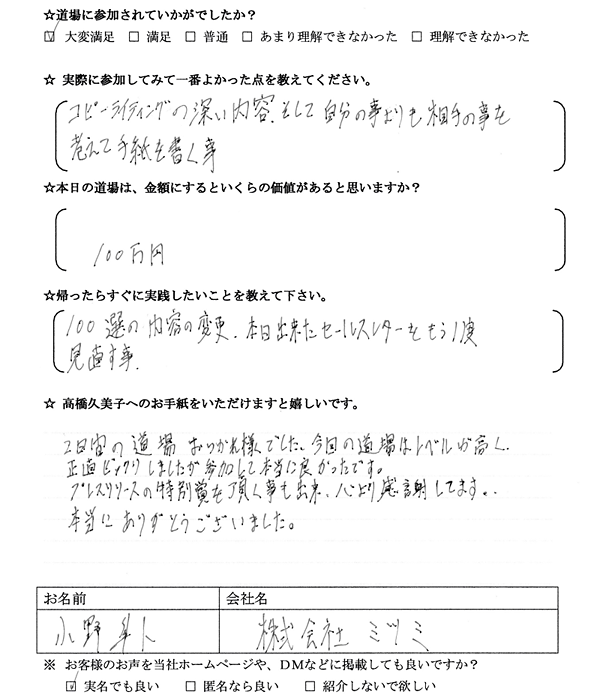 ☆道場に参加されていかがでしたか?
☑ 大変満足 □ 満足 □ 普通 □ あまり理解できなかった □ 理解できなかった
☆ 実際に参加してみて一番よかった点を教えてください。
コピーライティングの深い内容、そして自分の事よりも相手の事を
考えて手紙を書く事
☆本日の道場は、金額にするといくらの価値があると思いますか?
100万円
☆帰ったらすぐに実践したいことを教えて下さい。
100選の内容の変更、本日出来たセールスレターをもう1度
見直す事.
☆ 高橋久美子へのお手紙をいただけますと嬉しいです。
2日間の道場 おつかれ様でした。今回の道場はレベルが高く、
正直ビックリしましたが参加して本当に良かったです。
プレスリリースの特別賞を頂く事も出来、心より感謝してます。
本当にありがとうございました。
お名前 会社名
小野 隼人 株式会社 ミツミ
※ お客様のお声を当社ホームページや、DMなどに掲載しても良いですか?
☑ 実名でも良い □ 匿名なら良い □ 紹介しないで欲しい